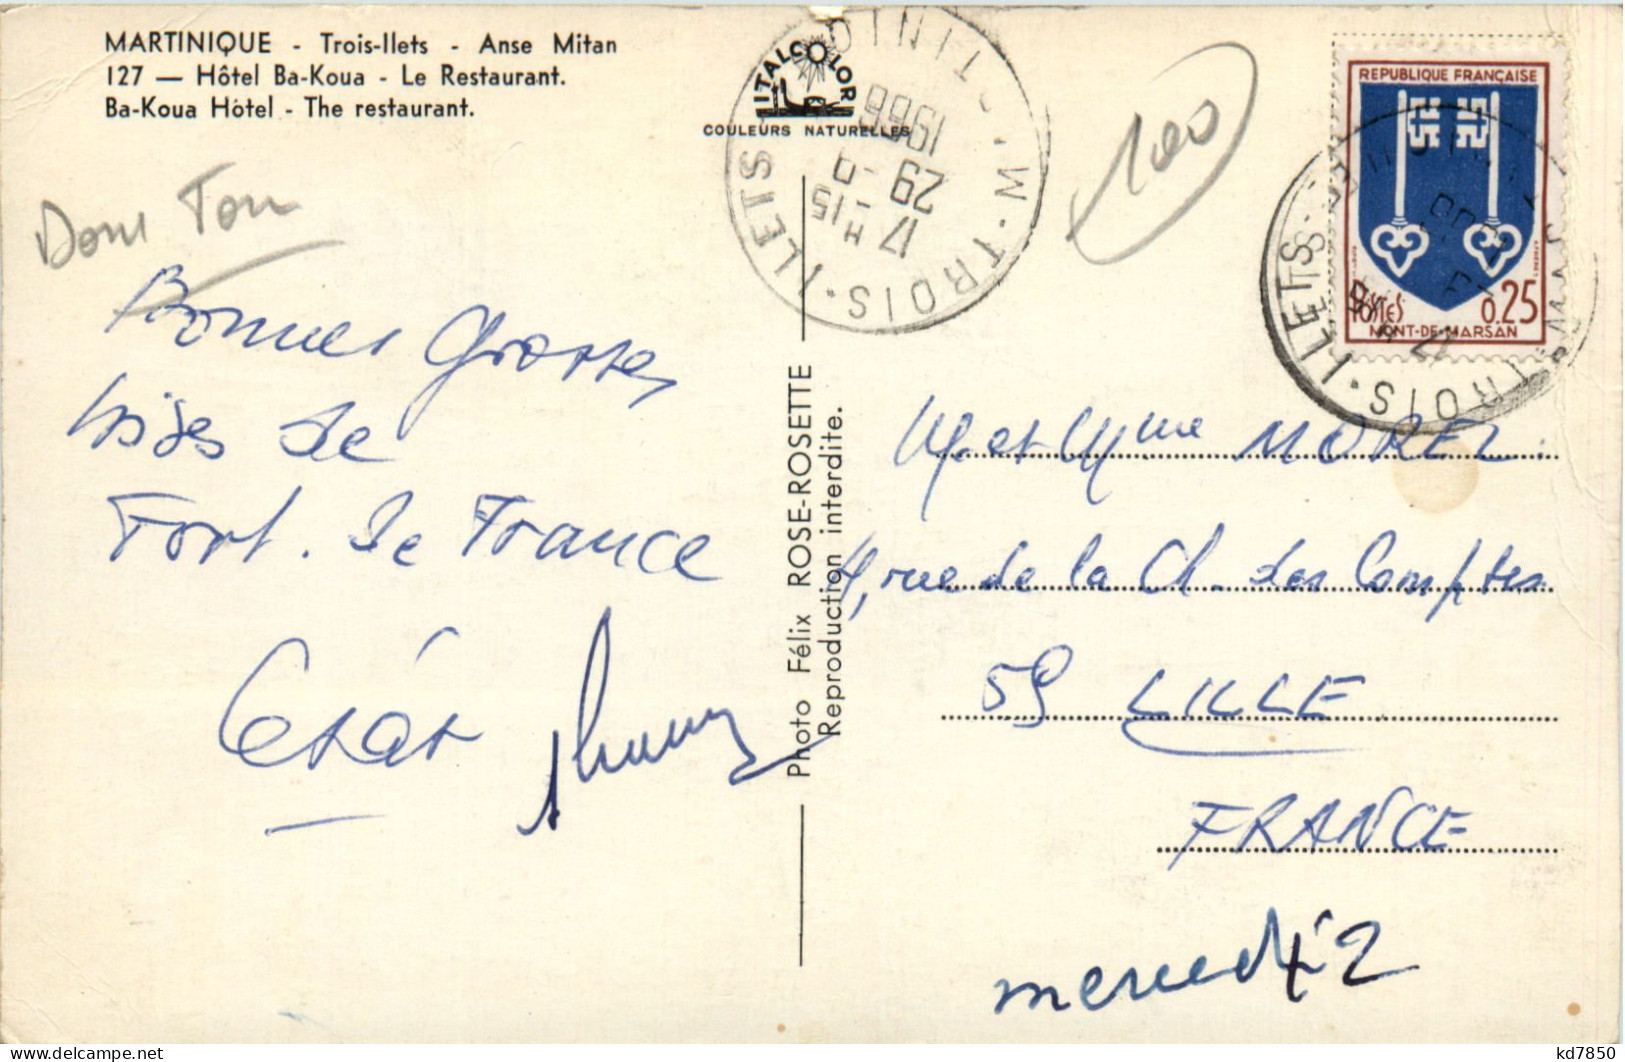 MARTINIQUE - Trois-Ilets - Anse Mitan
127 — Hôtel Ba-Koua - Le Restaurant.
Ba-Koua Hôtel - The restaurant.
ITALCOLOR
COULEURS NATURELLES
TROIS-ILETS
17 H 15
29 -
1966
100
REPUBLIQUE FRANÇAISE
POSTES
0.25
MONT-DE-MARSAN
TROIS-ILETS
Dom Tom
Bonnes Grosses
bises de
Fort. de France
César
Photo Félix ROSE-ROSETTE
Reproduction interdite.
M. et Mme MOREZ
4, rue de la Ch. des Comptes
59 LILLE
FRANCE
mercredi 2
kd7850